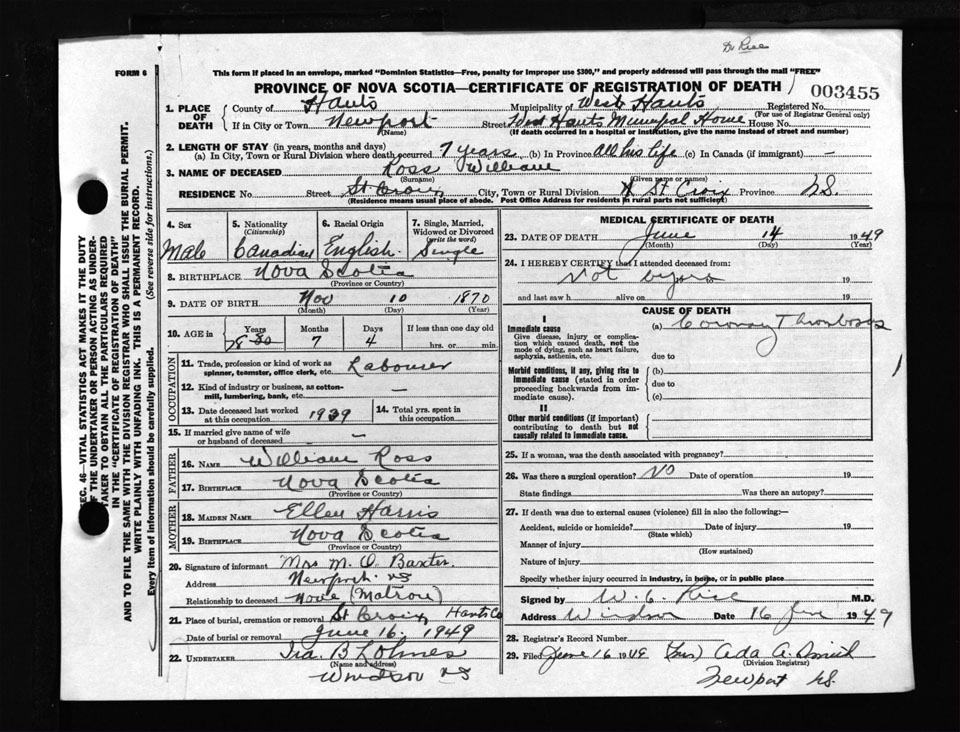 Dr Rice
FORM 6
This form if placed in an envelope, marked "Dominion Statistics—Free, penalty for improper use $300," and properly addressed will pass through the mail "FREE"
PROVINCE OF NOVA SCOTIA—CERTIFICATE OF REGISTRATION OF DEATH
003455
1. PLACE OF DEATH
County of Hants Municipality of West Hants Registered No.
(For use of Registrar General only)
If in City or Town Newport Street West Hants Municipal Home House No.
(Name) (If death occurred in a hospital or institution, give the name instead of street and number)
2. LENGTH OF STAY (in years, months and days)
(a) In City, Town or Rural Division where death occurred 7 years (b) In Province all his life (c) In Canada (if immigrant) —
3. NAME OF DECEASED Ross William
(Surname) (Given name or names)
RESIDENCE No. Street St Croix City, Town or Rural Division St Croix Province N.S.
(Residence means usual place of abode. Post Office Address for residents in rural parts not sufficient)
4. Sex
Male
5. Nationality
(Citizenship)
Canadian
6. Racial Origin
English.
7. Single, Married, Widowed or Divorced
(write the word)
Single
8. BIRTHPLACE Nova Scotia
(Province or Country)
9. DATE OF BIRTH Nov 10 1870
(Month) (Day) (Year)
10. AGE in Years Months Days If less than one day old
78 7 4 hrs. or min.
OCCUPATION
11. Trade, profession or kind of work as spinner, teamster, office clerk, etc. Labourer
12. Kind of industry or business, as cotton-mill, lumbering, bank, etc. —
13. Date deceased last worked at this occupation 1939
14. Total yrs. spent in this occupation
15. If married give name of wife or husband of deceased —
FATHER
16. NAME William Ross
17. BIRTHPLACE Nova Scotia
(Province or Country)
MOTHER
18. MAIDEN NAME Ellen Harris
19. BIRTHPLACE Nova Scotia
(Province or Country)
20. Signature of informant Mrs M. O. Baxter.
Address Newport NS
Relationship to deceased None (Matron)
21. Place of burial, cremation or removal St Croix, Hants Co
Date of burial or removal June 16. 1949
22. UNDERTAKER Ira. B Lohnes
(Name and address)
Windsor NS
MEDICAL CERTIFICATE OF DEATH
23. DATE OF DEATH June 14 1949
(Month) (Day) (Year)
24. I HEREBY CERTIFY that I attended deceased from:
Not by me 19
and last saw h alive on 19
CAUSE OF DEATH
I
Immediate cause
Give disease, injury or complication which caused death, not the mode of dying, such as heart failure, asphyxia, asthenia, etc.
(a) Coronary Thrombosis
due to
Morbid conditions, if any, giving rise to immediate cause (stated in order proceeding backwards from immediate cause).
(b)
due to
(c)
II
Other morbid conditions (if important) contributing to death but not causally related to immediate cause.
25. If a woman, was the death associated with pregnancy?
26. Was there a surgical operation? No Date of operation 19
State findings Was there an autopsy?
27. If death was due to external causes (violence) fill in also the following:—
Accident, suicide or homicide? Date of injury 19
(State which)
Manner of injury
(How sustained)
Nature of injury
Specify whether injury occurred in industry, in home, or in public place
Signed by W. C. Rice M.D.
Address Windsor Date 16 Jun 1949
28. Registrar's Record Number
29. Filed June 16 1949 (Mrs) Ada A. Smith
(Division Registrar)
Newport NS.
SEC. 46—VITAL STATISTICS ACT MAKES IT THE DUTY
OF THE UNDERTAKER OR PERSON ACTING AS UNDER-
TAKER TO OBTAIN ALL THE PARTICULARS REQUIRED
IN THE "CERTIFICATE OF REGISTRATION OF DEATH"
AND TO FILE THE SAME WITH THE DIVISION REGISTRAR WHO SHALL ISSUE THE BURIAL PERMIT.
WRITE PLAINLY WITH UNFADING INK. THIS IS A PERMANENT RECORD.
Every item of information should be carefully supplied. (See reverse side for instructions.)